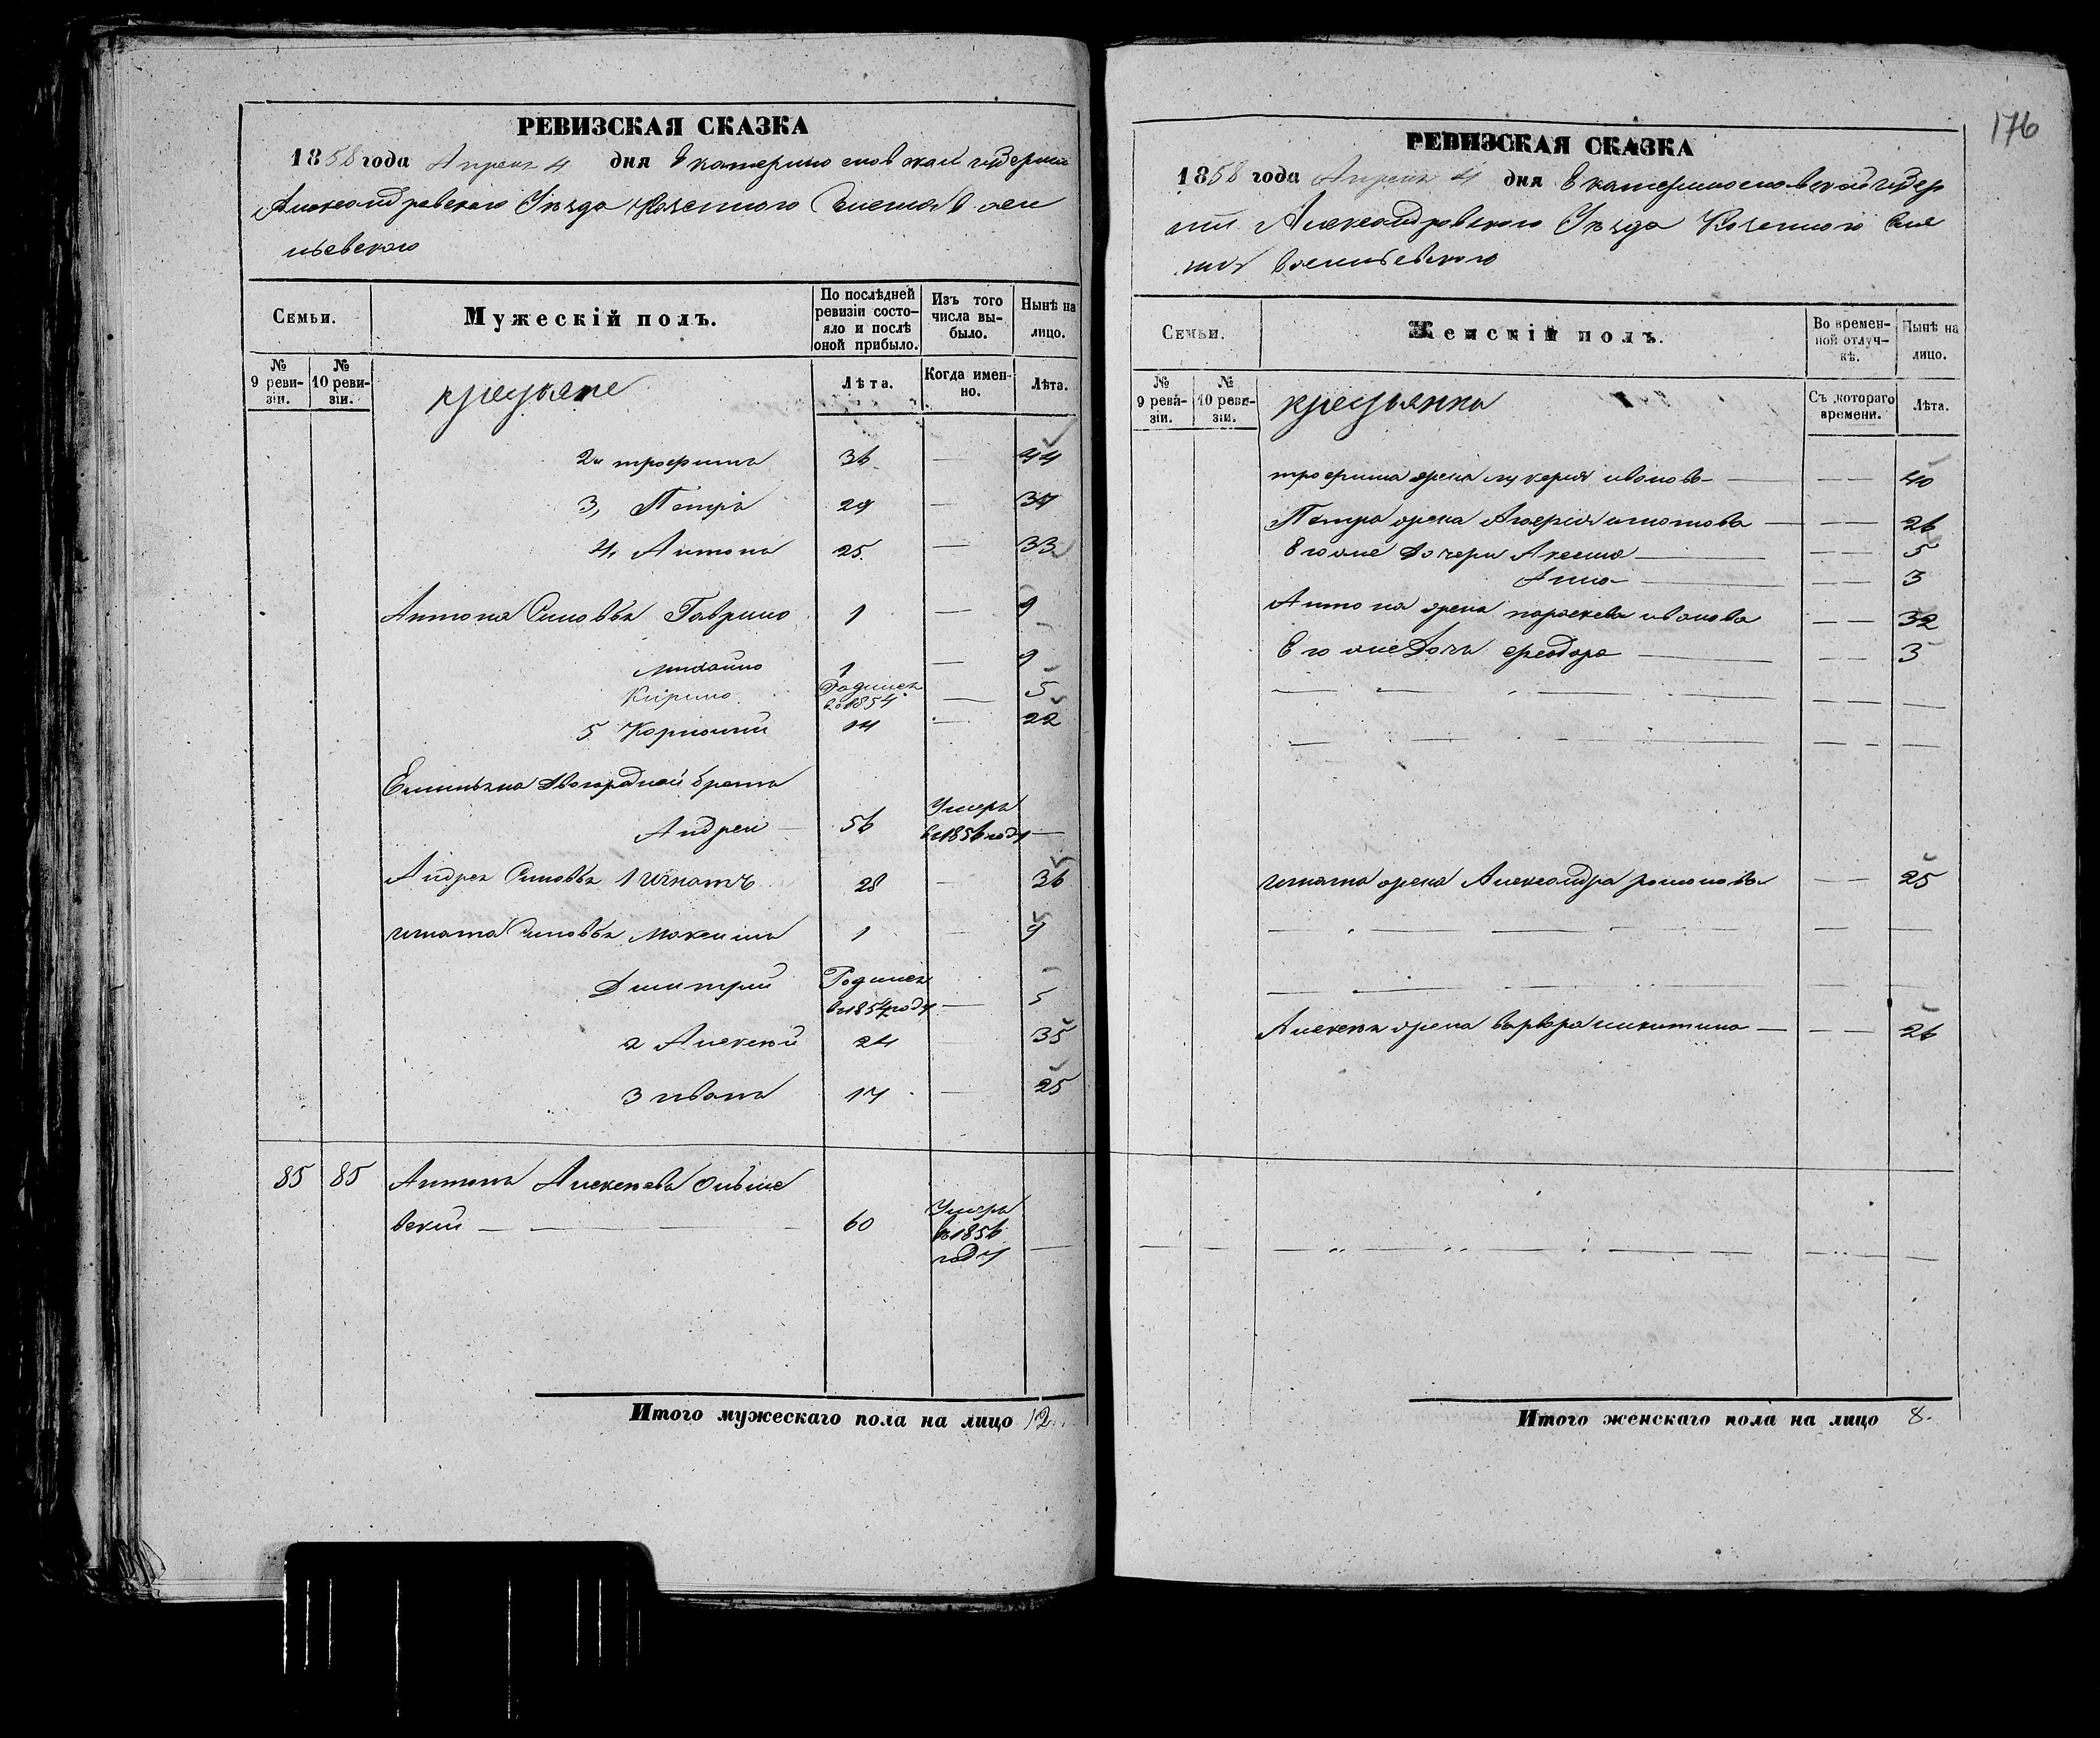 РЕВИЗСКАЯ СКАЗКА
1858 года Апреля 4 дня Екатеринославской губернии
Александровского Уезда Казенного Селения Васи
льевского
Семьи.
Мужескій полъ.
По послѣдней ревизіи состояло и послѣ оной прибыло.
Изъ того числа выбыло.
Нынѣ на лицо.
№ 9 ревизіи.
№ 10 ревизіи.
крестьяне
Лѣта.
Когда именно.
Лѣта.
2й трофимъ 36 — 44
3, Петръ 29 — 37
4, Антонъ 25 — 33
Антона Сыновья Гаврило 1 — 9
михайло 1 — 9
Кирило Родился в 1854 — 5
5 Корнилий 14 — 22
Емильяна двоюродной братъ
Андрей — 56 Умеръ в 1856 году —
Андрея Сыновья 1 игнатъ 28 — 36
игната Сыновья максимъ 1 — 9
Дмитрий Родился в 1854 году — 5
2 Алексей 24 35
3 иванъ 17 — 25
85 85 Антонъ Алексеевъ
вский — 60 Умеръ в 1856 году —
Итого мужескаго пола на лицо 12.
176
РЕВИЗСКАЯ СКАЗКА
1858 года Апреля 4 дня Екатеринославской губер
нии Александровского Уезда Казенного Селе
ния Васильевского
Семьи.
Женскій полъ.
Во временной отлучкѣ.
Нынѣ на лицо.
№ 9 ревизіи.
№ 10 ревизіи.
крестьянка
Съ котораго времени.
Лѣта.
трофима жена лукерия иванова — — — 40
Петра жена — — — 26
Его же дочери Аксинья — — — 5
Анна — — — 3
Антона жена параскева иванова — — 32
Его же Дочь феодора — — — 3
игната жена Александра романова — — 25
Алексея жена варвара никитина — — — 26
Итого женскаго пола на лицо 8.